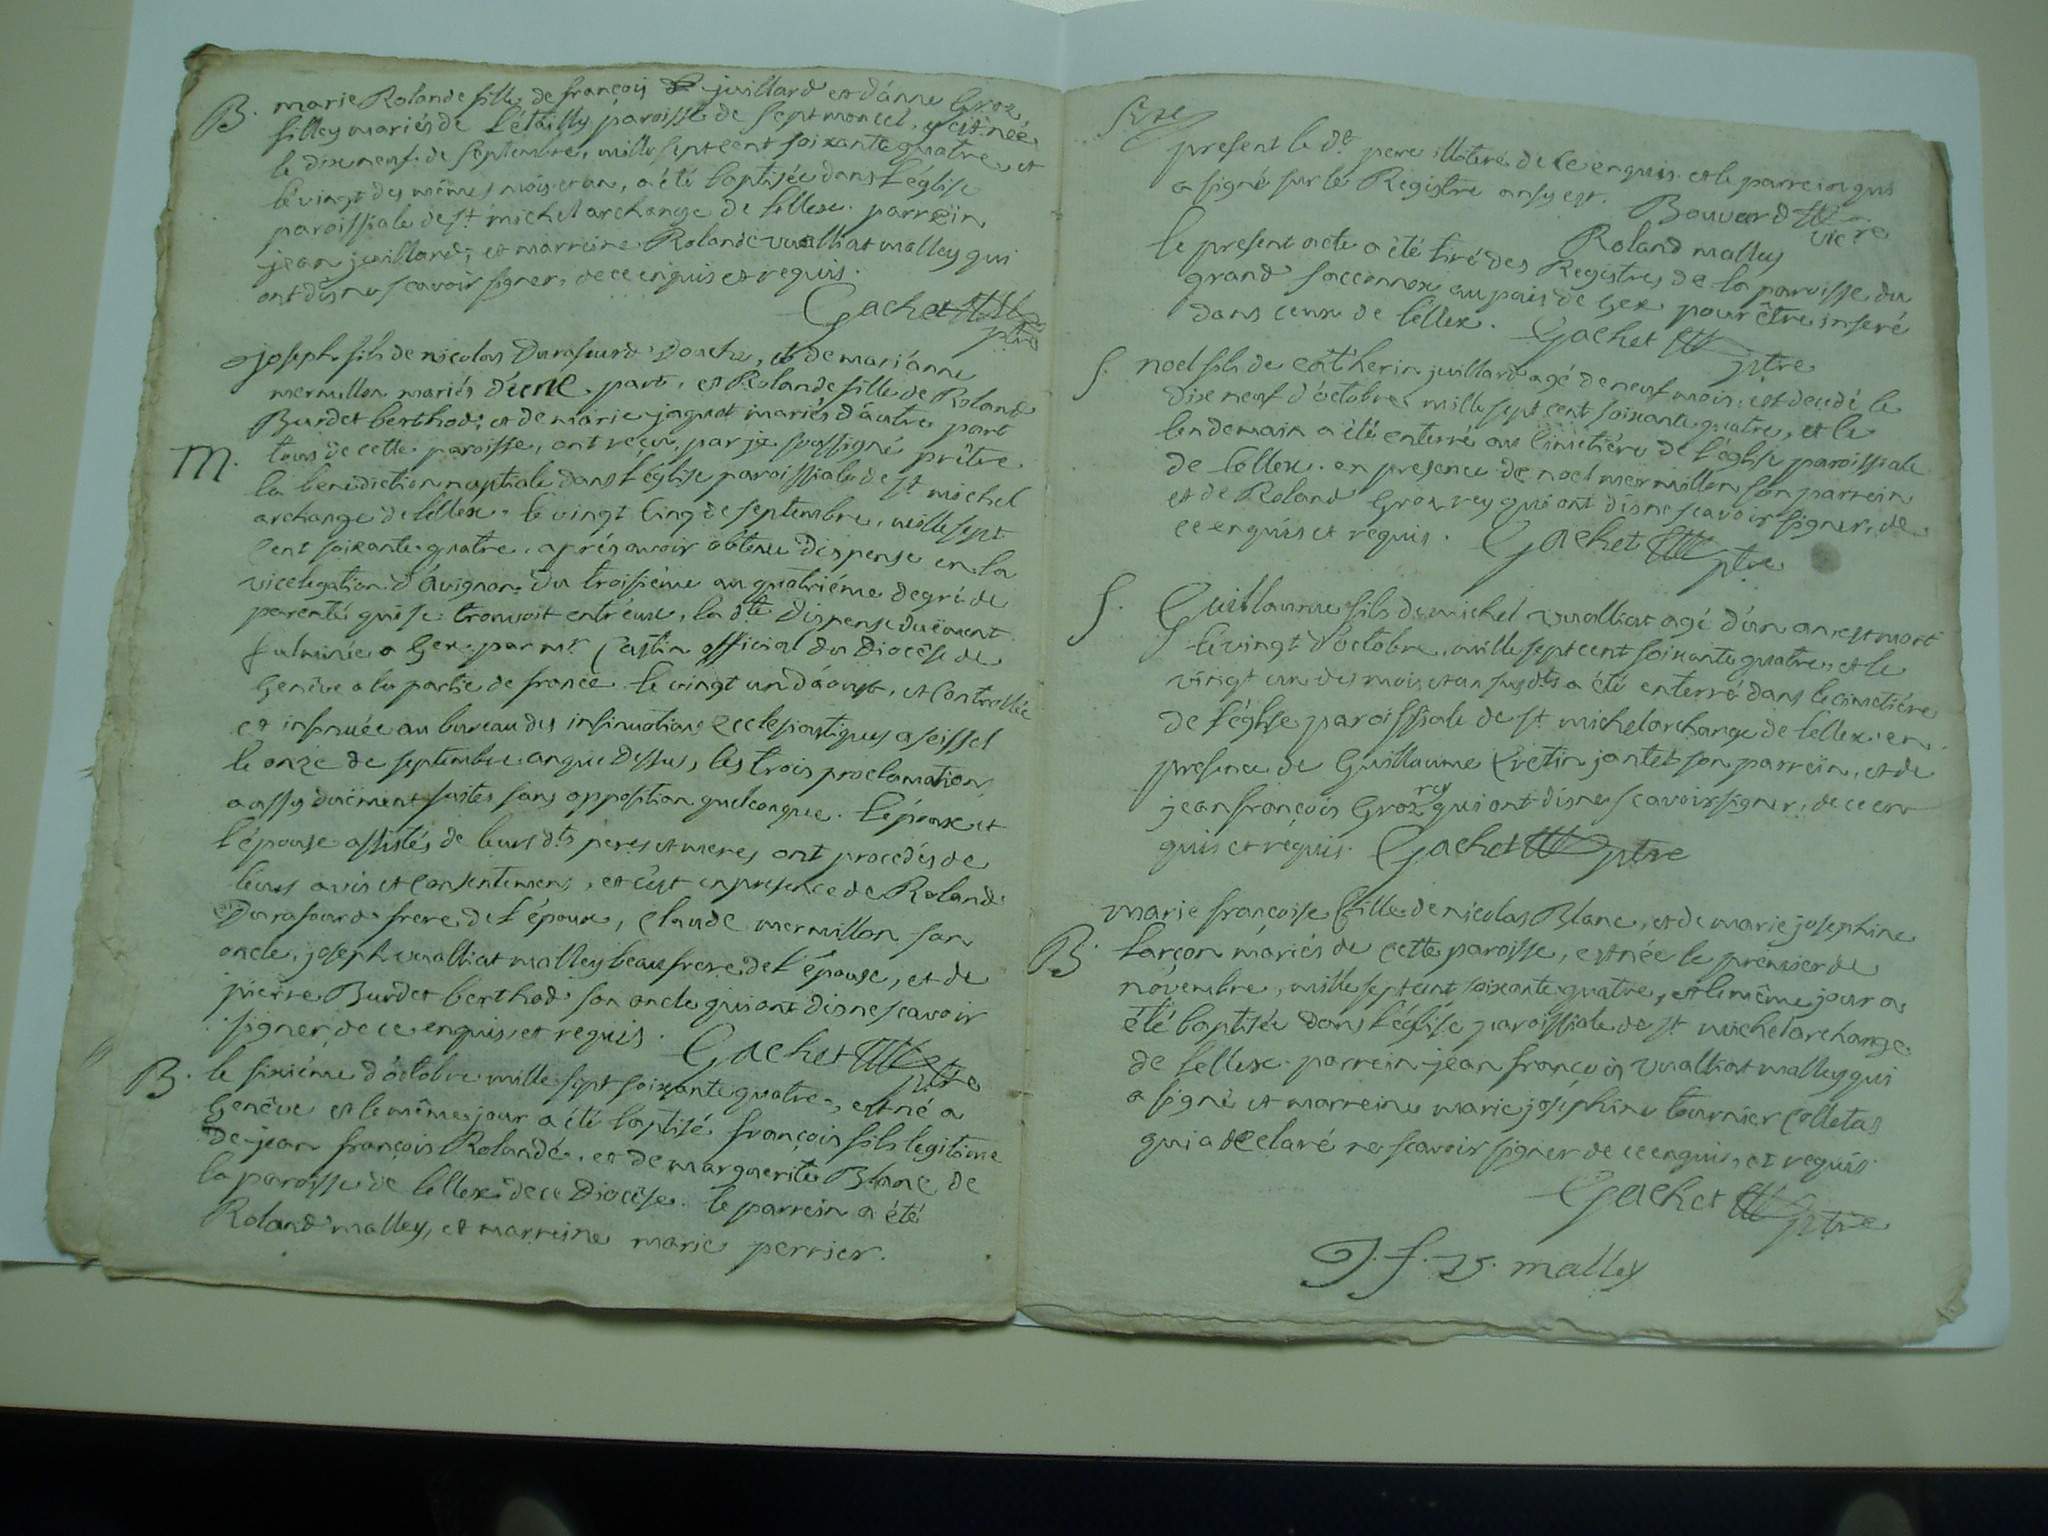 B. marie Rolande fille de françois juillard et d'anne Groz
filley mariés de l'étailly paroisse de septmoncel, est née
le dix neuf de septembre, mille sept cent soixante quatre, et
le vingt des mêmes mois et an, a été baptisée dans l'église
paroissiale de st. michel archange de lellex. parrein
jean juillard; et marreine Rolande vualliat malley qui
ont dis ne scavoir signer, de ce enquis et requis.
Gachet ptre
joseph fils de nicolas Durafourd Douche, et de marianne
mermillon mariés d'une part, et Rolande fille de Roland
Burdet berthod; et de marie jaquet mariés d'autre part
M. tous de cette paroisse, ont reçu, par je soussigné prêtre
la benediction nuptiale dans l'église paroissiale de st. michel
archange de lellex. le vingt cinq de septembre, mille sept
cent soixante quatre. aprés avoir obtenu dispense en la
vicelegation d'avignon du troisiéme au quatriéme degré de
parenté qui se trouvoit entr'eux, la dte. dispense duëment
fulminée a Gex par mr. Castin official du Diocêse de
Genêve a la partie de france le vingt un d'aoust, et controllée
et insinuée au bureau des insinuations ecclesiastiques a seissel
le onze de septembre an que dessus, les trois proclamations
aassy duëment faites sans opposition quelconque. l'époux et
l'épouse assistés de leurs dts peres et meres ont procedés de
leurs avis et consentement, et c'est en presence de Roland
Durafourd frere de l'époux, claude mermillon son
oncle, joseph vualliat malley beaufrere de l'épouse, et de
pierre Burdet berthod son oncle qui ont dis ne scavoir
signer, de ce enquis et requis. Gachet ptre
B. le sixiéme d'octobre mille sept soixante quatre, est né a
Genêve et le même jour a été baptisé françois fils legitime
de jean françois Rolandé, et de marguerite Blanc de
la paroisse de lellex de ce Diocêse. le parrein a été
Roland malley, et marreine marie perrier.
present le dt. pere illiteré de ce enquis. et le parrein qui
a signé sur le Registre ansy est. Bouvard vicre
Roland malley
le present acte a été tiré des Registres de la paroisse du
grand saconnex au païs de Gex pour être inseré
dans ceux de lellex. Gachet ptre
f. noel fils de catherin juillard agé de neuf mois, est decedé le
dix neuf d'octobre mille sept cent soixante quatre, et le
lendemain a été enterré au cimetière de l'église paroissiale
de lellex. en presence de noel mermillon son parrein
et de Roland Groz rey qui ont dis ne scavoir signer, de
ce enquis et requis. Gachet ptre
f. Guillaume fils de michel vualliat agé d'un an est mort
le vingt d'octobre, mille sept cent soixante quatre, et le
vingt un des mois et an susdts a été enterré dans le cimetière
de l'église paroissiale de st. michel archange de lellex. en
presence de Guillaume Cretin jantet son parrein, et de
jean françois Groz rey qui ont dis ne scavoir signer, de ce en
quis et requis. Gachet ptre
marie françoise fille de nicolas Blanc, et de marie josephine
B. lançon mariés de cette paroisse, est née le premier de
novembre, mille sept cent soixante quatre, et le même jour a
été baptisée dans l'église paroissiale de st. michel archange
de lellex. parrein jean françois vualliat malley qui
a signé et marreine marie josephine tournier colletas
qui a declaré ne scavoir signer de ce enquis, et requis
Gachet ptre
J. f. v. malley